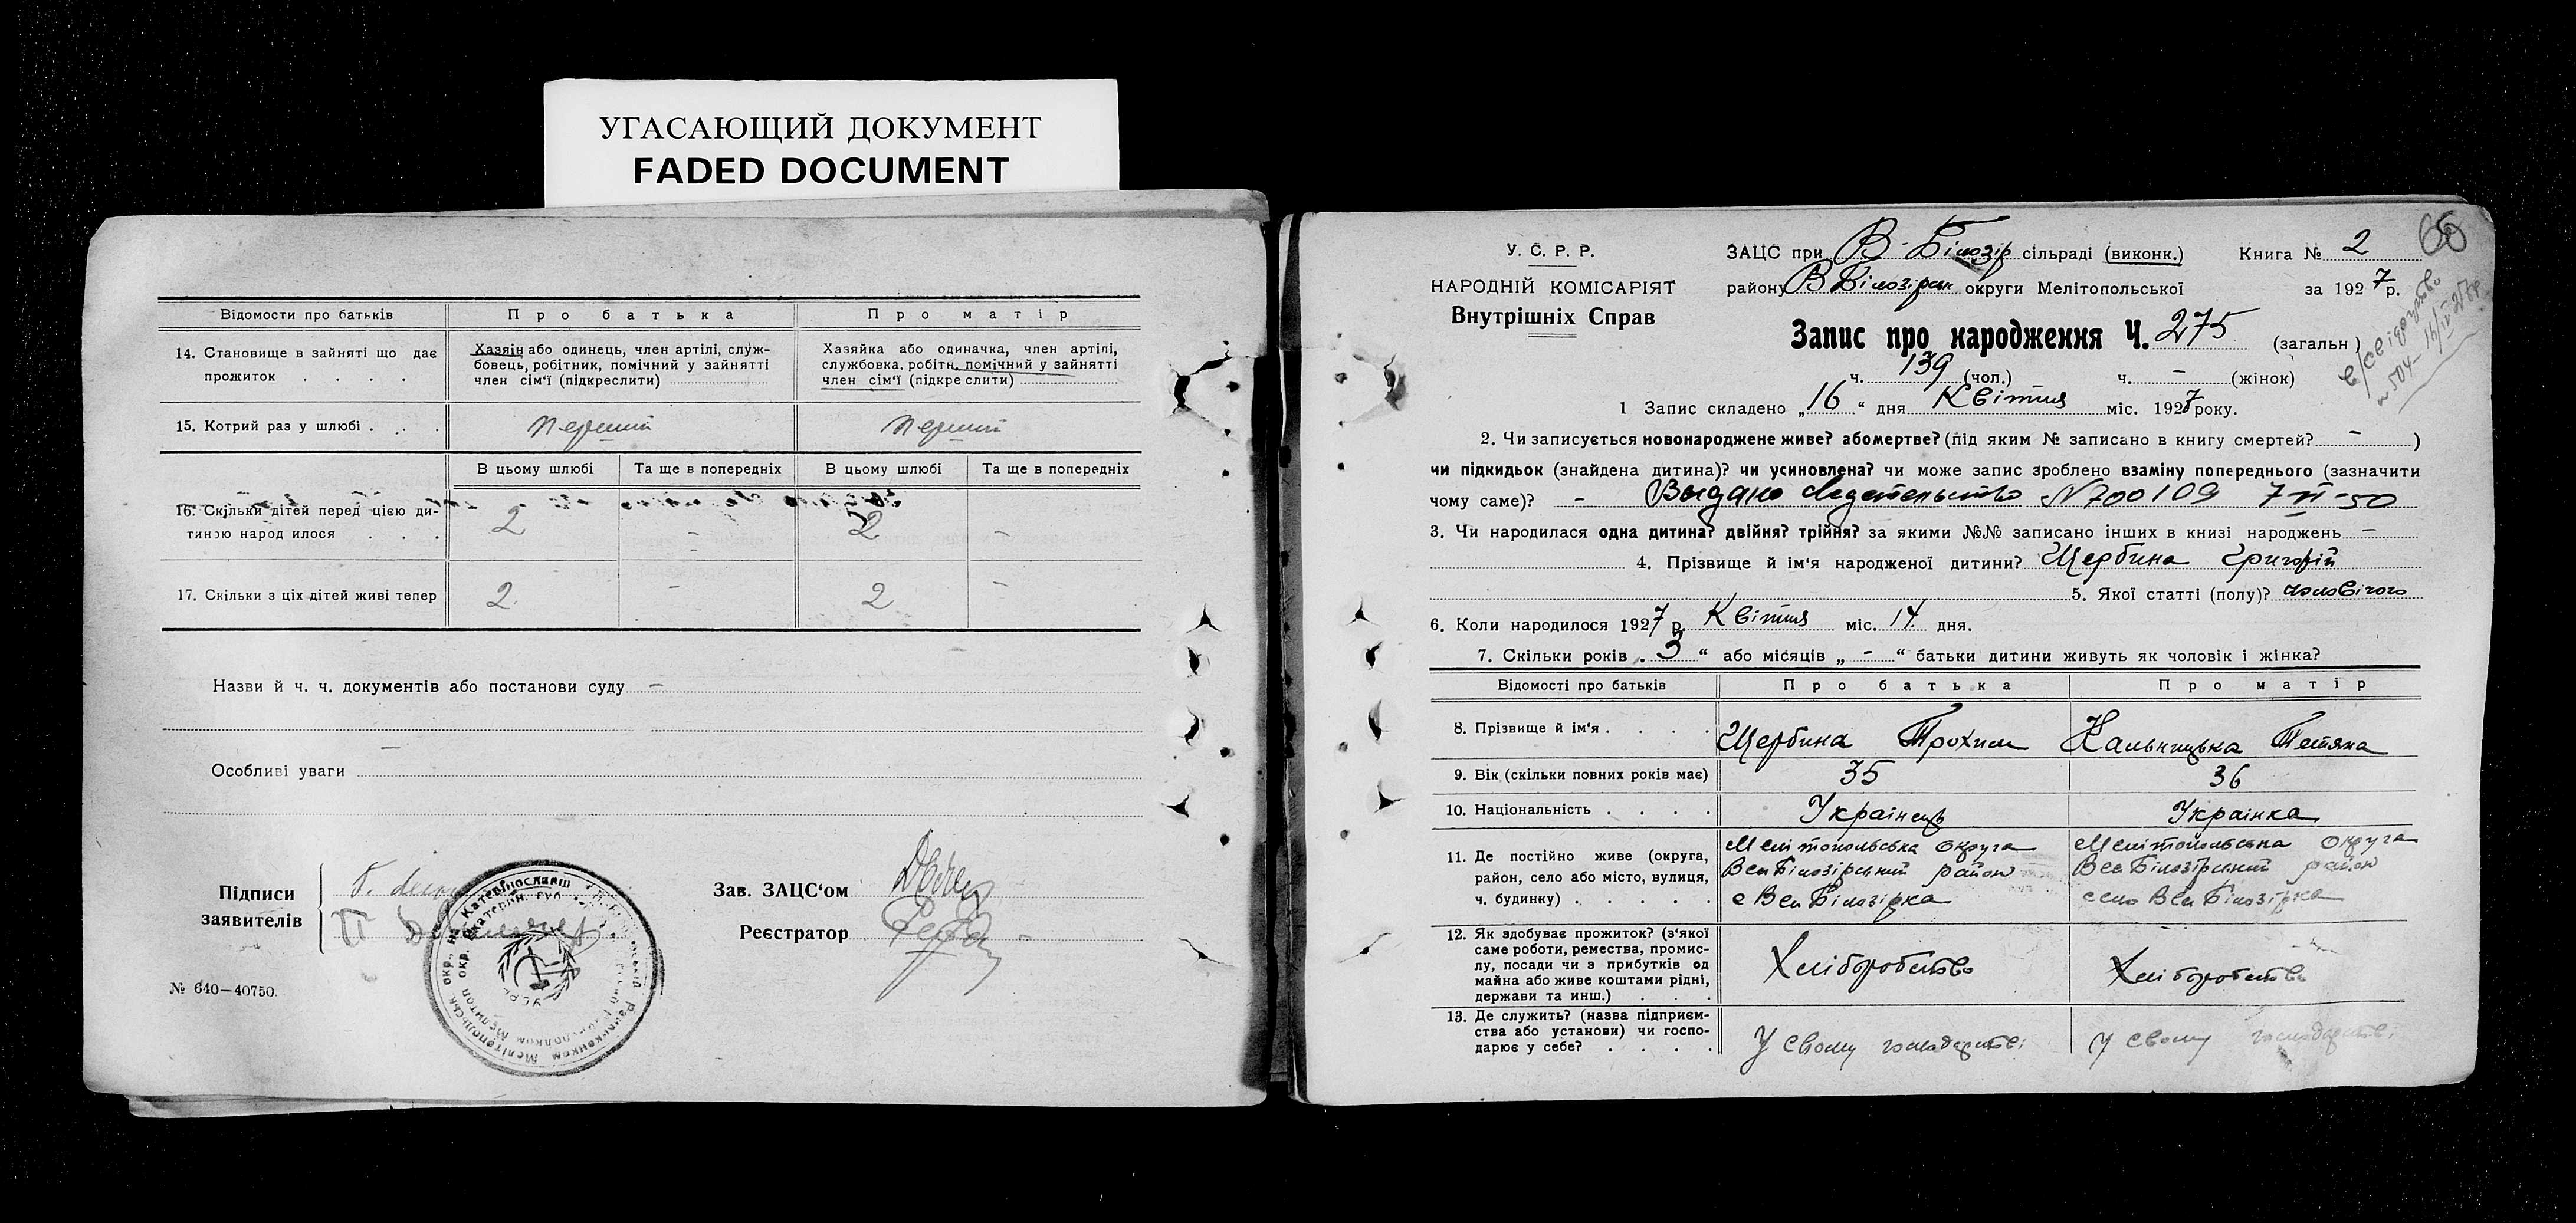 УГАСАЮЩИЙ ДОКУМЕНТ
FADED DOCUMENT
Відомости про батьків
Про батька
Про матір
14. Становище в зайняті що дає прожиток . . . .
Хазяін або одинець, член артілі, служ-
бовець, робітник, помічний у зайнятті
член сім'ї (підкреслити)
Хазяйка або одиначка, член артілі,
службовка, робітн. помічний у зайнятті
член сім'ї (підкреслити)
15. Котрий раз у шлюбі . . . .
перший
перший
В цьому шлюбі
Та ще в попередніх
В цьому шлюбі
Та ще в попередніх
16. Скільки дітей перед цією ди-
тиною народилося . . .
2
–
2
–
17. Скільки з ціх дітей живі тепер
2
–
2
–
Назви й ч. ч. документів або постанови суду –
–
Особливі уваги
Підписи
заявителів
Зав. ЗАЦС'ом
Реєстратор
№ 640—40750.
У. С. Р. Р.
НАРОДНІЙ КОМІСАРІЯТ
Внутрішніх Справ
ЗАЦС при В-Білозір сільраді (виконк.)
Книга № 2
66
району В Білозірськ округи Мелітопольської
за 1927 р.
Запис про народження Ч. 275 (загальн)
ч. 139 (чол.) ч. – (жінок)
1 Запис складено „16“ дня Квітня міс. 1927 року.
2. Чи записується новонароджене живе? або мертве? (під яким № записано в книгу смертей? – )
чи підкидьок (знайдена дитина)? чи усиновлена? чи може запис зроблено взаміну попереднього (зазначити
чому саме)? – Выдано свидетельство N 700109 7-VI-50
3. Чи народилася одна дитина? двійня? трійня? за якими №№ записано інших в книзі народжень –
4. Прізвище й ім'я народженої дитини? Щербина Григорій
5. Якої статті (полу)? чоловічого
6. Коли народилося 1927 р. Квітня міс. 14 дня.
7. Скільки років „3“ або місяців „-“ батьки дитини живуть як чоловік і жінка?
Відомості про батьків
Про батька
Про матір
8. Прізвище й ім'я . . . .
Щербина Трохим
Кальницька Тетяна
9. Вік (скільки повних років має)
35
36
10. Національність . . . .
Українець
Українка
11. Де постійно живе (округа,
район, село або місто, вулиця,
ч. будинку) . . . . .
Мелітопольська округа
Вел Білозірський район
с Вел Білозірка
Мелітопольська округа
Вел Білозірський район
село Вел Білозірка
12. Як здобуває прожиток? (з'якої
саме роботи, ремества, промис-
лу, посади чи з прибутків од
майна або живе коштами рідні,
держави та инш.) . . .
Хліборобство
Хліборобство
13. Де служить? (назва підприєм-
ства або установи) чи госпо-
дарює у себе? . . . .
У свому господарстві
У свому господарстві